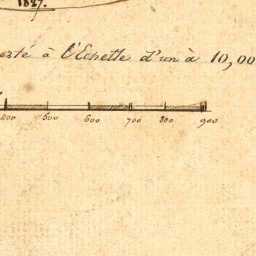 1827.
à l'Echelle d'un à 10,00
500 600 700 800 900